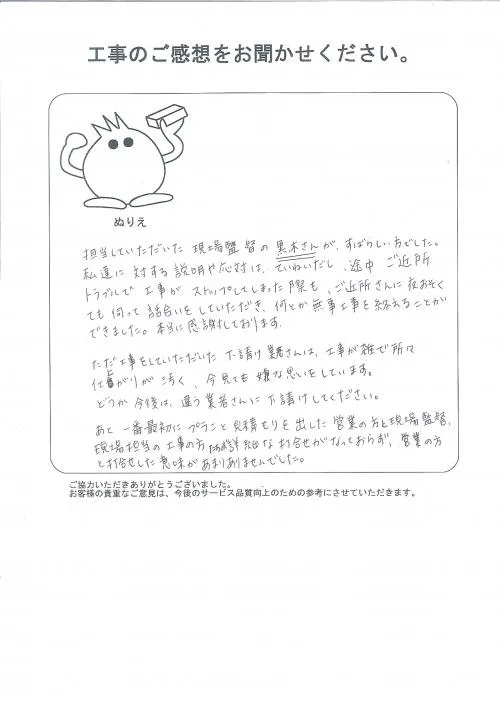 工事のご感想をお聞かせください。
ぬりえ
担当していただいた 現場監督の 黒木さんが、すばらしい方でした。
私達に 対する 説明や応対は、ていねいだし、途中 ご近所
トラブルで 工事が ストップしてしまった際も、ご近所さんに夜おそく
ても 伺って 話合いをしていただき、何とか無事工事を終えることが
できました。本当に感謝しております。
ただ工事をしていただいた 下請け業者さんは、工事が雑で所々
仕上がりが 汚く、今見ても 嫌な思いをしています。
どうか今後は、違う業者さんに 下請けしてください。
あと 一番最初に プランと見積もりを出した 営業の方と現場監督、
現場担当の工事の方 詳細な打合せがなっておらず、営業の方
と打合せした意味があまりありませんでした。
ご協力いただきありがとうございました。
お客様の貴重なご意見は、今後のサービス品質向上のための参考にさせていただきます。